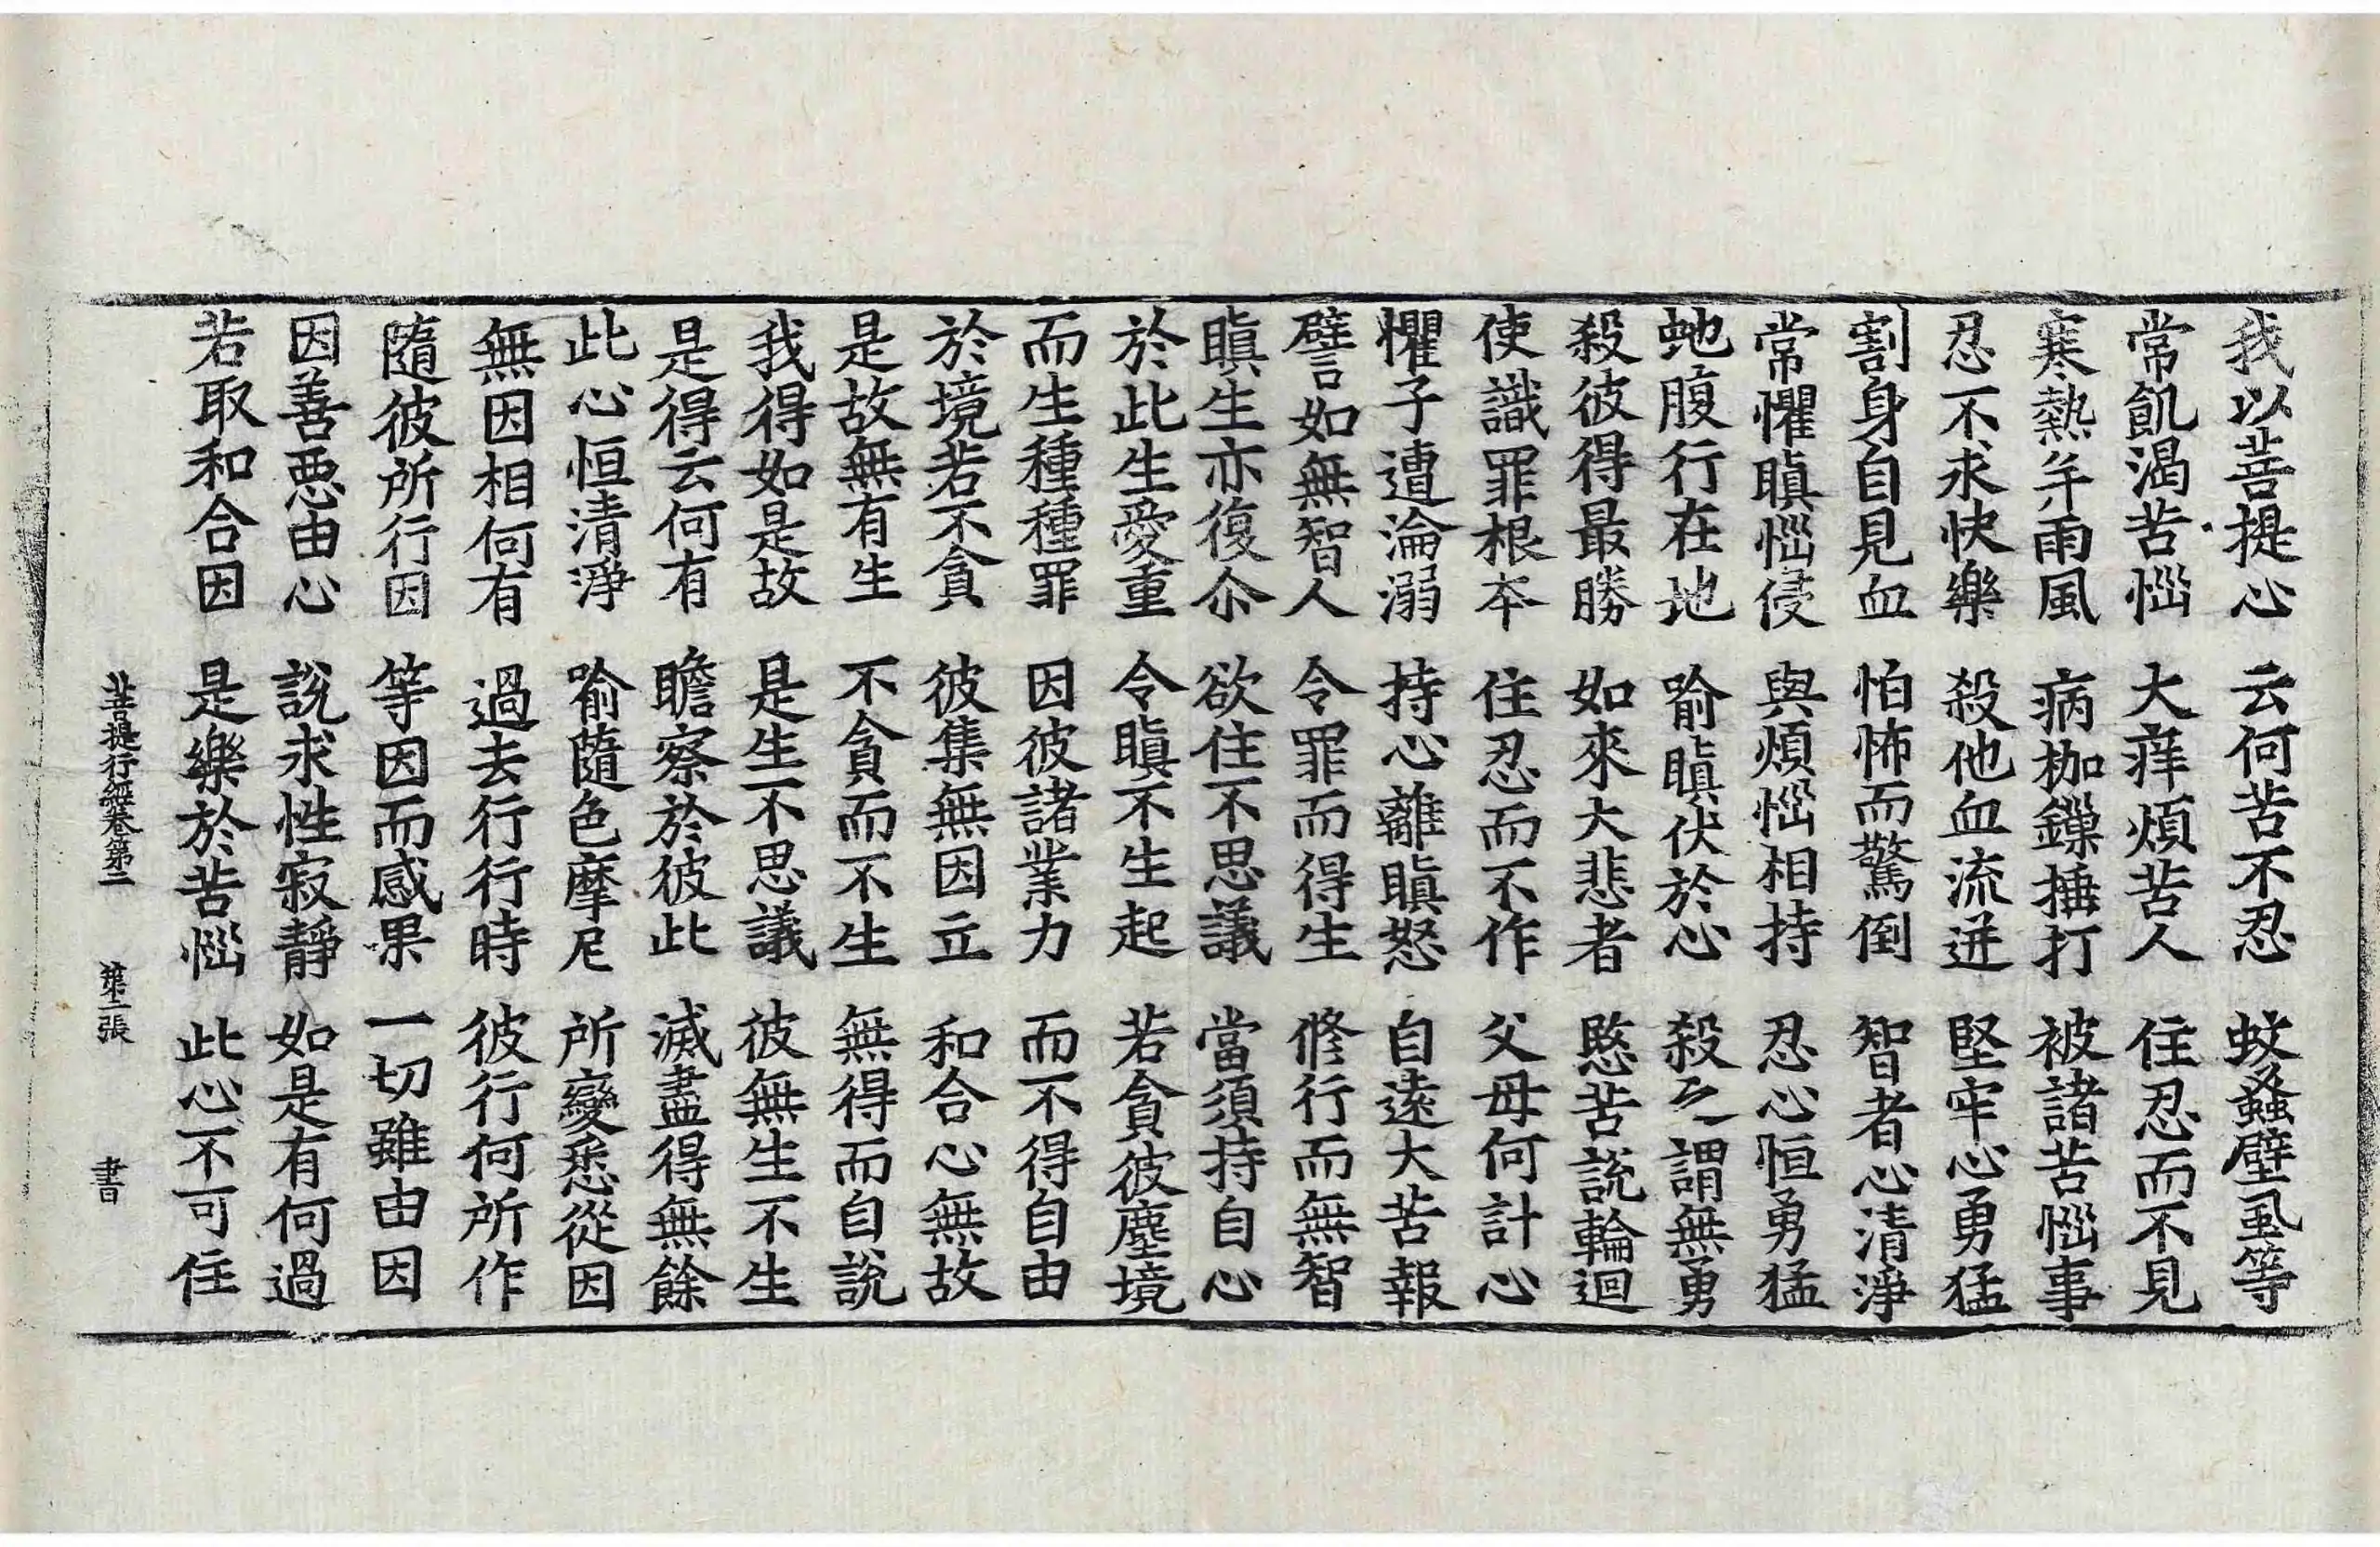 我以菩提心　云何苦不忍　蚊蝱壁虱等
常飢渴苦惱　大痒煩苦人　住忍而不見
寒熱并雨風　病枷鏁捶打　被諸苦惱事
忍不求快樂　殺他血流迸　堅牢心勇猛
割身自見血　怕怖而驚倒　智者心清淨
常懼瞋惱侵　與煩惱相持　忍心恒勇猛
虵腹行在地　喻瞋伏於心　殺之謂無勇
殺彼得最勝　如來大悲者　愍苦說輪迴
使識罪根本　住忍而不作　父母何計心
懼子遭淪溺　持心離瞋怒　自遠大苦報
譬如無智人　令罪而得生　修行而無智
瞋生亦復尒　欲住不思議　當須持自心
於此生愛重　令瞋不生起　若貪彼塵境
而生種種罪　因彼諸業力　而不得自由
於境若不貪　彼集無因立　和合心無故
是故無有生　不貪而不生　無得而自說
我得如是故　是生不思議　彼無生不生
是得云何有　瞻察於彼此　滅盡得無餘
此心恒清淨　喻隨色摩尼　所變悉從因
無因相何有　過去行行時　彼行何所作
隨彼所行因　等因而感果　一切雖由因
因善惡由心　說求性寂靜　如是有何過
若取和合因　是樂於苦惱　此心不可住
菩提行經卷第二　第二張　書